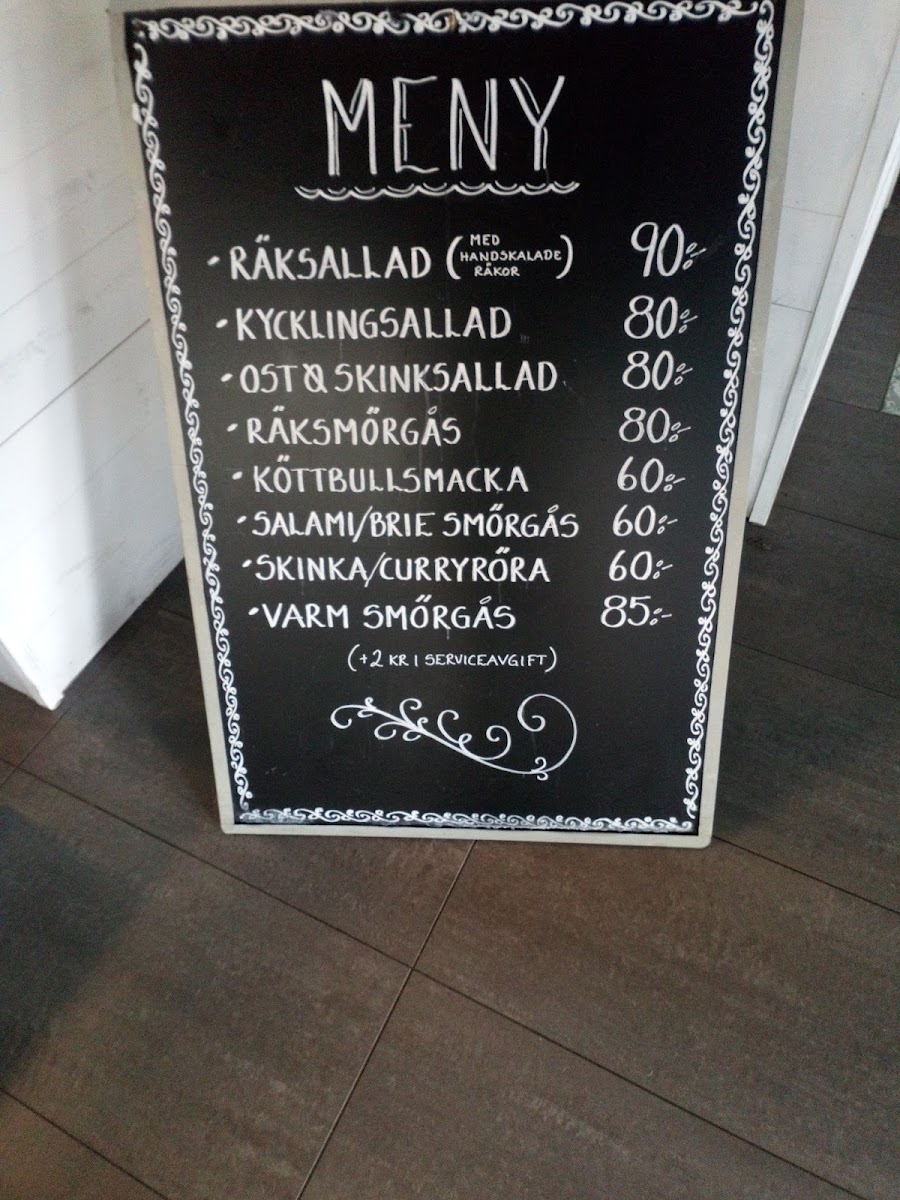 MENY
• RÄKSALLAD (MED HANDSKALADE RÄKOR) 90:-
• KYCKLINGSALLAD 80:-
• OST & SKINKSALLAD 80:-
• RÄKSMÖRGÅS 80:-
• KÖTTBULLSMACKA 60:-
• SALAMI/BRIE SMÖRGÅS 60:-
• SKINKA/CURRYRÖRA 60:-
• VARM SMÖRGÅS 85:-
(+2 KR I SERVICEAVGIFT)